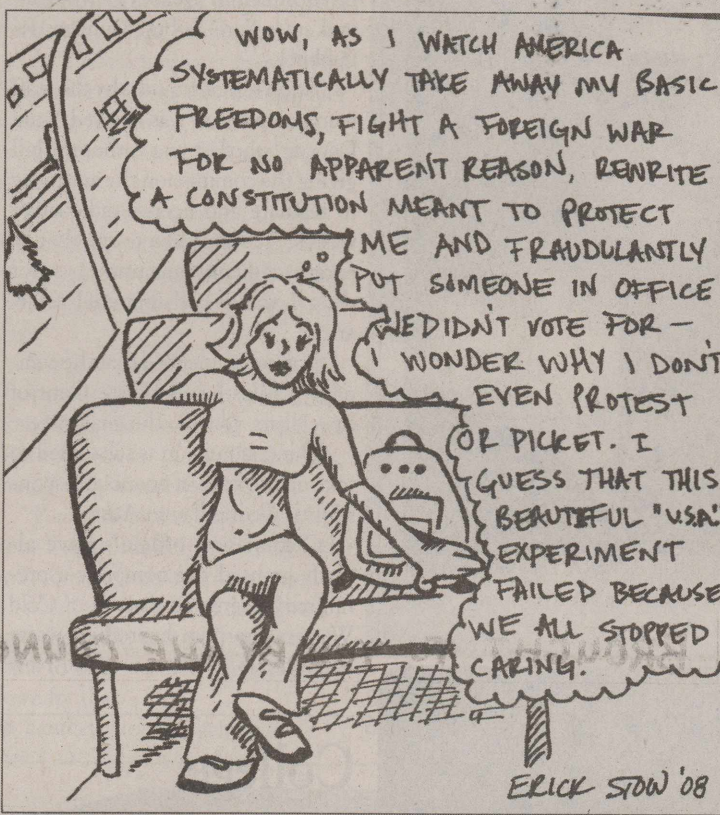 WOW, AS I WATCH AMERICA
SYSTEMATICALLY TAKE AWAY MY BASIC
FREEDOMS, FIGHT A FOREIGN WAR
FOR NO APPARENT REASON, REWRITE
A CONSTITUTION MEANT TO PROTECT
ME AND FRAUDULANTLY
PUT SOMEONE IN OFFICE
WE DIDN'T VOTE FOR —
I WONDER WHY I DON'T
EVEN PROTEST
OR PICKET. I
GUESS THAT THIS
BEAUTIFUL "U.S.A."
EXPERIMENT
FAILED BECAUSE
WE ALL STOPPED
CARING.
ERICK STOW '08